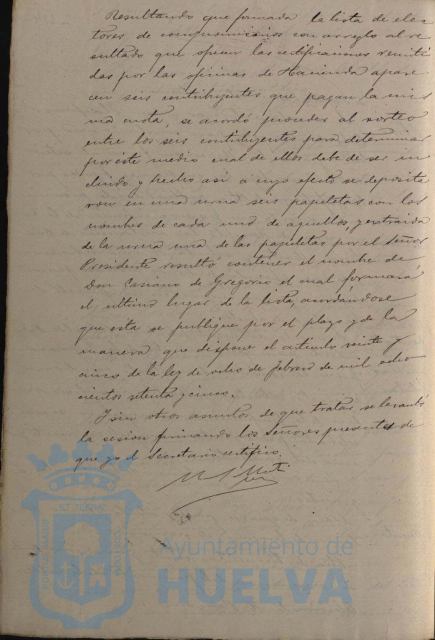 Resultando que formada la lista de elec-
tores de compromisarios con arreglo al re-
sultado que ofrecen las certificaciones remiti-
das por las oficinas de Hacienda apare-
cen seis contribuyentes que pagan la mis-
ma cuota, se acordó proceder al sorteo
entre los seis contribuyentes para determinar
por éste medio cual de ellos debe de ser in-
cluido y hecho así a cuyo efecto se deposita-
ron en una urna seis papeletas con los
nombres de cada uno de aquellos, y extraida
de la urna una de las papeletas por el Señor
Presidente resultó contener el nombre de
Don Casiano de Gregorio el cual formará
el ultimo lugar de la lista, acordándose
que esta se publique por el plazo y de la
manera que dispone el artículo veinte y
cinco de la ley de ocho de febrero de mil ocho-
cientos setenta y cinco.
Y sin otros asuntos de que tratar se levantó
la sesion firmando los Señores presentes de
que yo el Secretario certifico.
Ayuntamiento de
HUELVA